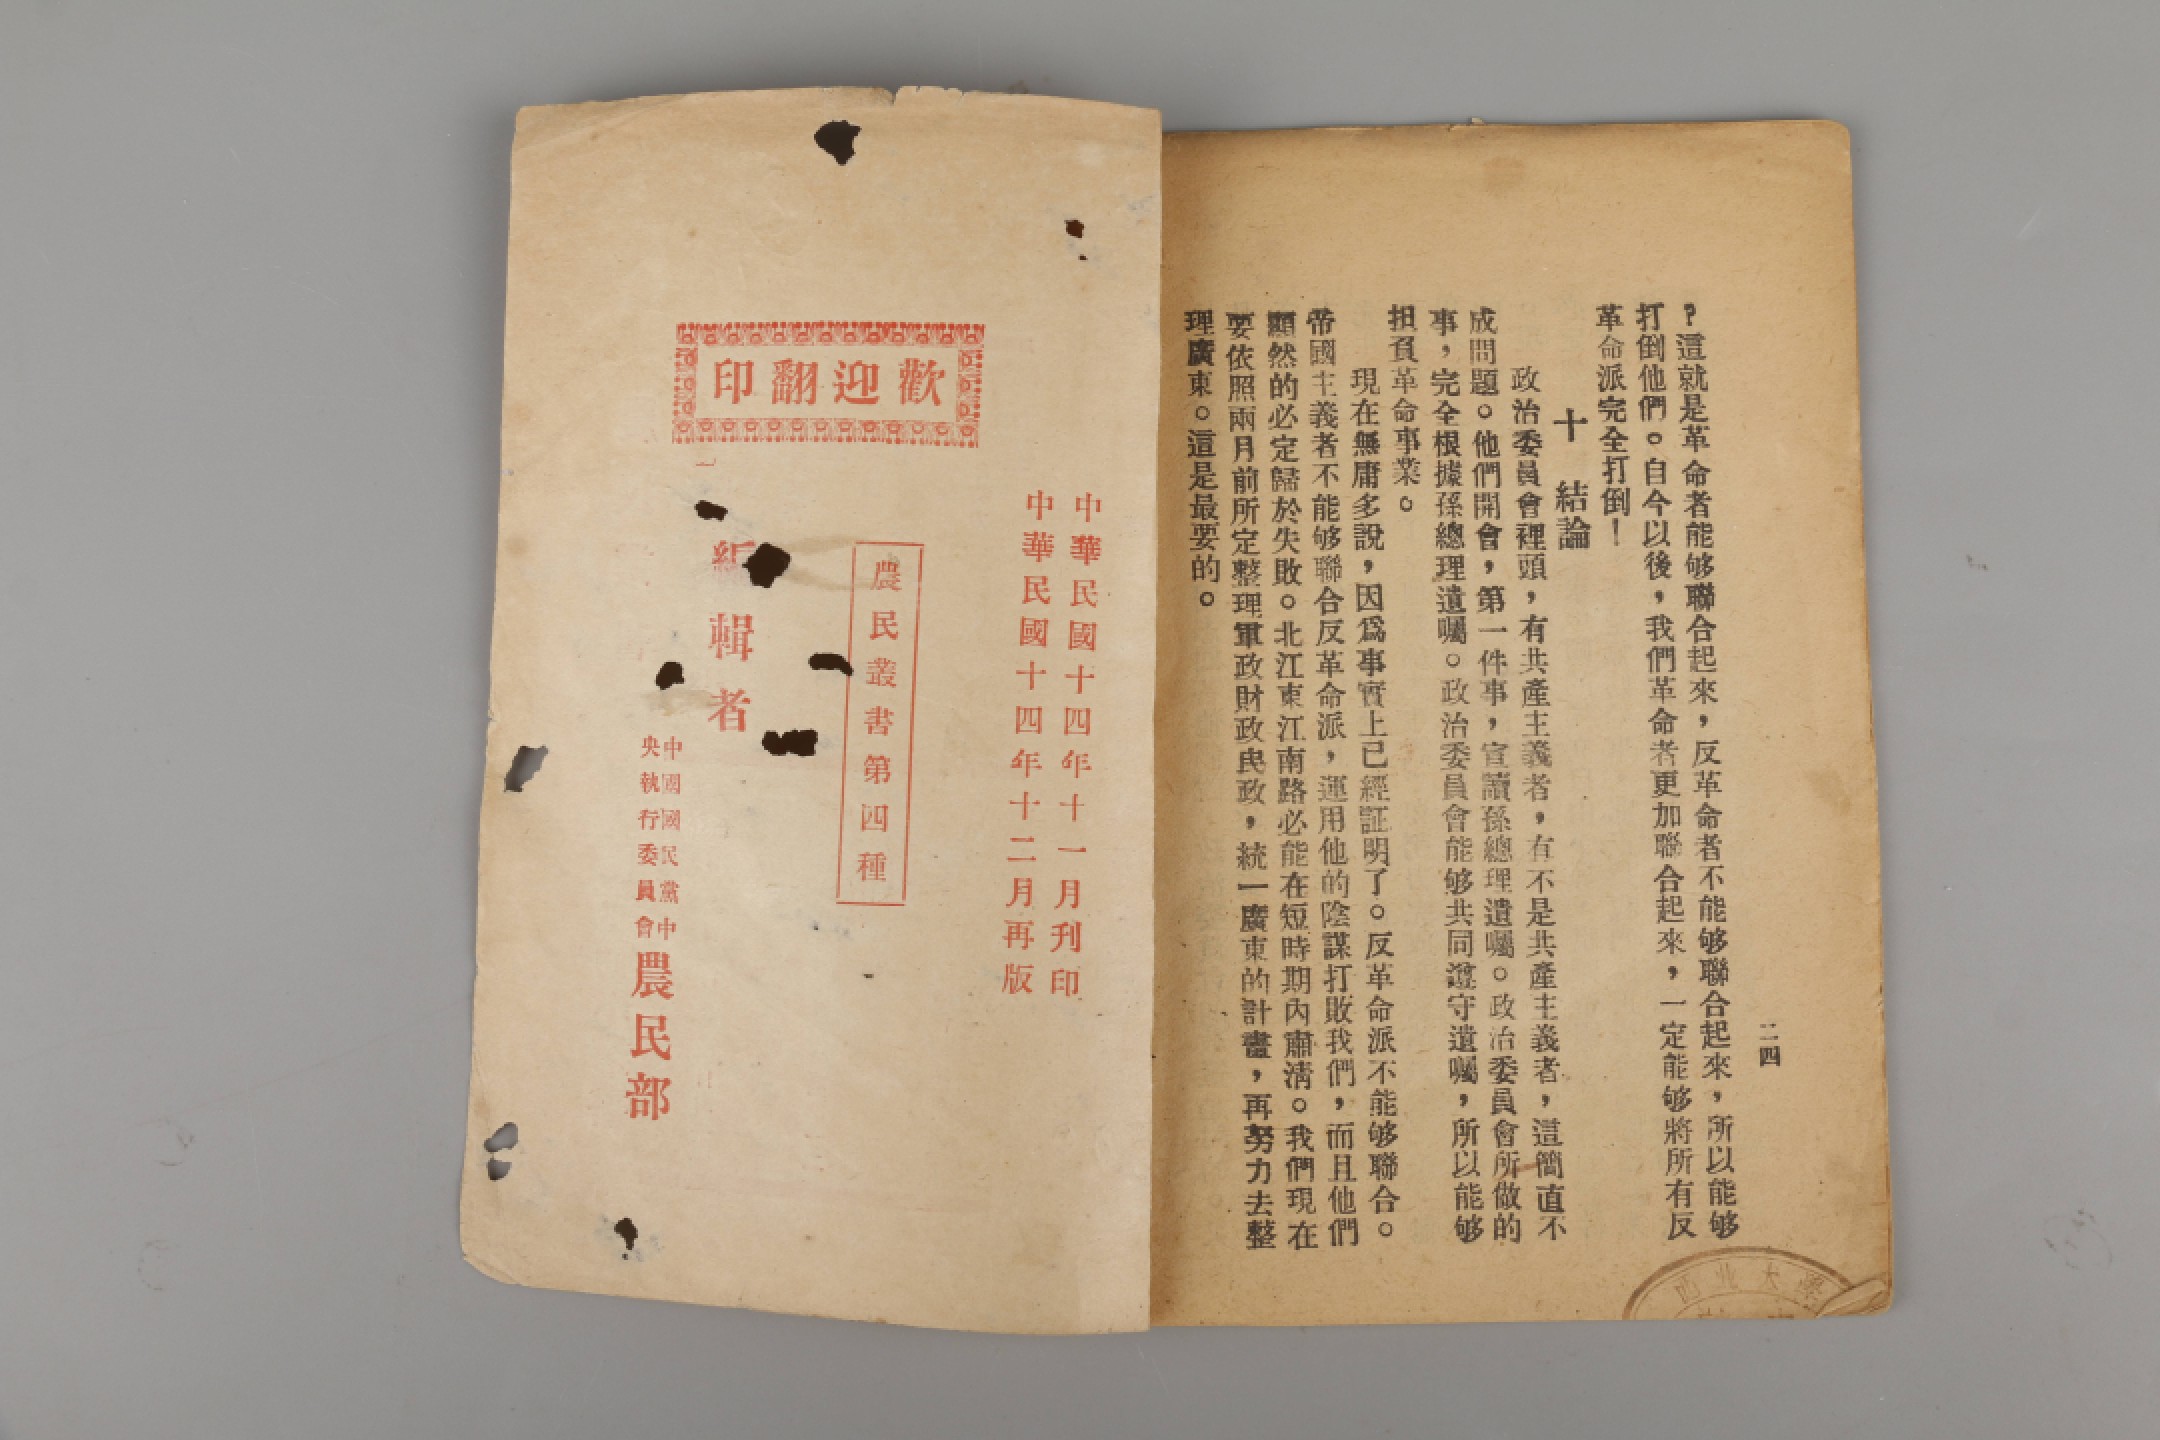 二四
？這就是革命者能够聯合起來，反革命者不能够聯合起來，所以能够
打倒他們。自今以後，我們革命者更加聯合起來，一定能够將所有反
革命派完全打倒！
十　結論
政治委員會裡頭，有共產主義者，有不是共產主義者，這簡直不
成問題。他們開會，第一件事，宣讀孫總理遺囑。政治委員會所做的
事，完全根據孫總理遺囑。政治委員會能够共同遵守遺囑，所以能够
担負革命事業。
現在無庸多說，因爲事實上已經証明了。反革命派不能够聯合。
帝國主義者不能够聯合反革命派，運用他的陰謀打敗我們，而且他們
顯然的必定歸於失敗。北江東江南路必能在短時期內肅清。我們現在
要依照兩月前所定整理軍政財政民政，統一廣東的計畫，再努力去整
理廣東。這是最要的。
中華民國十四年十一月刋印
中華民國十四年十二月再版
歡迎翻印
農民叢書第四種
編輯者
中國國民黨中
央執行委員會
農民部
西北大學